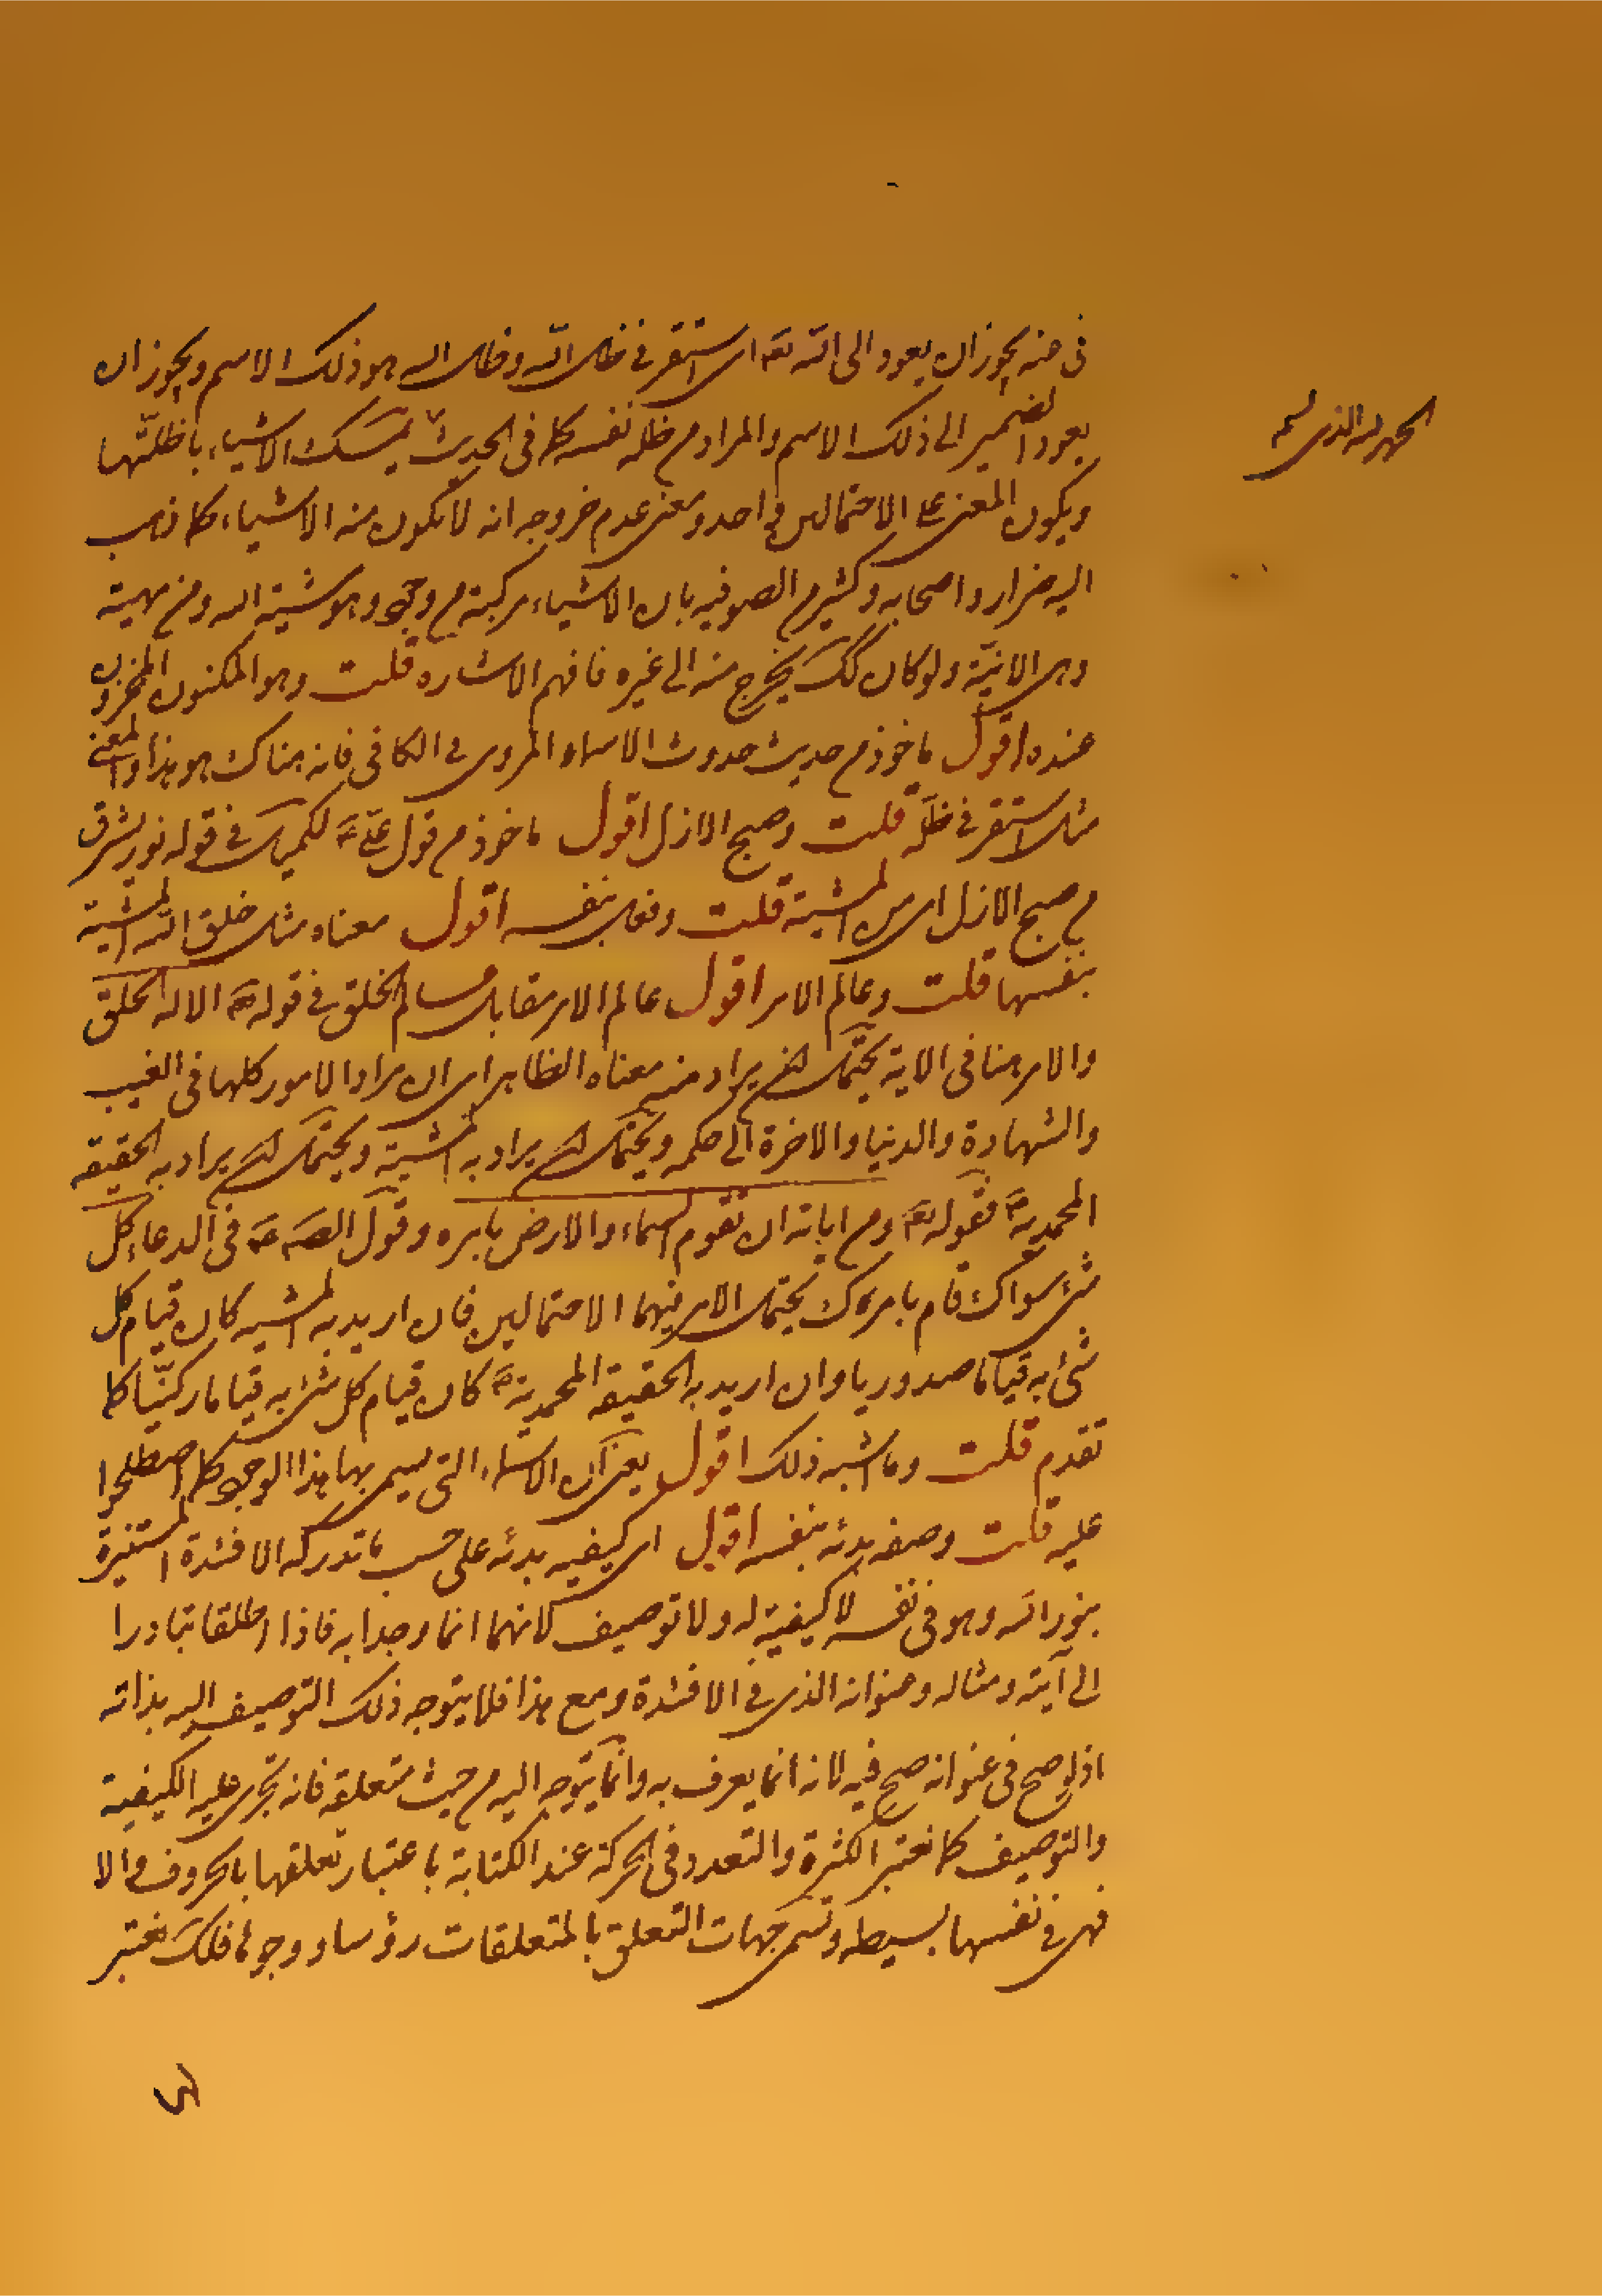 في منه يجوز ان يعود الى الله تعه اى استقر في ظل الله وظل الله هو ذلك الاسم ويجوز ان
يعود الضمير الى ذلك الاسم والمراد من ظله نفسه كما في الحديث يمسك الاشياء باظلتها
ويكون المعنى على الاحتمالين واحد ومعنى عدم خروجه انه لا يكون منه الاشياء كما ذهب
اليه ضرار واصحابه وكثير من الصوفيه بان الاشياء مركبة من وجود وهو مشية الله ومن مهية
وهى الانيّة ولو كان كك يخرج منه الى غيره فافهم الاشاره قلت وهو المكنون المخزون
عنده اقول ماخوذ من حديث حدوث الاسماء المروى في الكافى فانه هناك هو هذا والمعنى
مثل استقر في ظلّه قلت وصبح الازل اقول ماخوذ من قول علىّ ع لكميل في قوله نور يشرق
من صبح الازل اى من المشية قلت وفعل بنفسه اقول معناه مثل خلق الله المشية
بنفسها قلت وعالم الامر اقول عالم الامر مقابل عالم الخلق في قوله تعه الا له الخلق
والامر هنا في الاية يحتمل ان يراد منه معناه الظاهر اى ان مراد الامور كلها في الغيب
والشهادة والدنيا والاخرة الى حكمه ويحتمل ان يراد به المشية ويحتمل ان يراد به الحقيقه
المحمدية ص فقوله تعه ومن اياته ان تقوم السماء والارض بامره وقول الصه ع في الدعاء كل
شئ سواك قام بامرك يحتمل الامر فيهما الاحتمالين فان اريد به المشيه كان قيام كل
شئ به قياما صدوريا وان اريد به الحقيقه المحمدية ص كان قيام كل شئ به قياما ركنيّا كما
تقدم قلت وما اشبه ذلك اقول يعنى ان الاسماء التى يسمى بها هذا الوجود كما اصطلحوا
عليه قلت وصفه بدئه بنفسه اقول اى كيفيه بدئه على حسب ما تدركه الافئدة المستنيرة
بنور الله وهو في نفسه لا كيفية له ولا توصيف لانهما انما وجدا به فاذا اطلقا تبادرا
الى آيته ومثاله وعنوانه الذى في الافئدة ومع هذا فلا يتوجه ذلك التوصيف اليه بذاته
اذ لو صح في عنوانه صح فيه لانه انما يعرف به وانما يتوجه اليه من حيث متعلقه فانه تجرى عليه الكيفية
والتوصيف كما نعتبر الكثرة والتعدد في الحركة عند الكتابة باعتبار تعلقها بالحروف والا
فهى في نفسها بسيطه وتسمى جهات التعلق بالمتعلقات رؤسا ووجوها فلك نعتبر